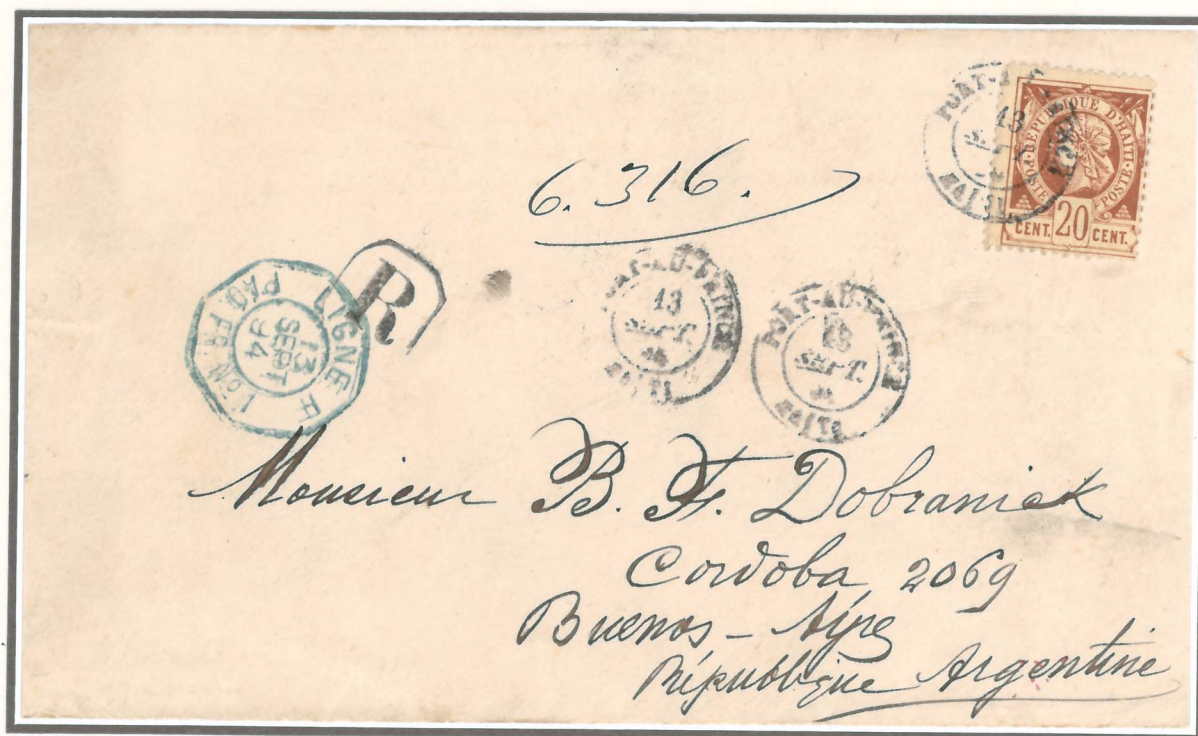 PORT-AU-
13
HAITI
RÉPUBLIQUE D'HAITI
POSTE
CENT. 20 CENT.
6.316.
R
LIGNE F
13
SEPT
94
PAQ. FR. N°1
PORT-AU-PRINCE
13
SEPT.
HAITI
PORT-AU-PRINCE
SEPT.
HAITI
Monsieur B. F. Dobranick
Cordoba 2069
Buenos-Ayres
République Argentine